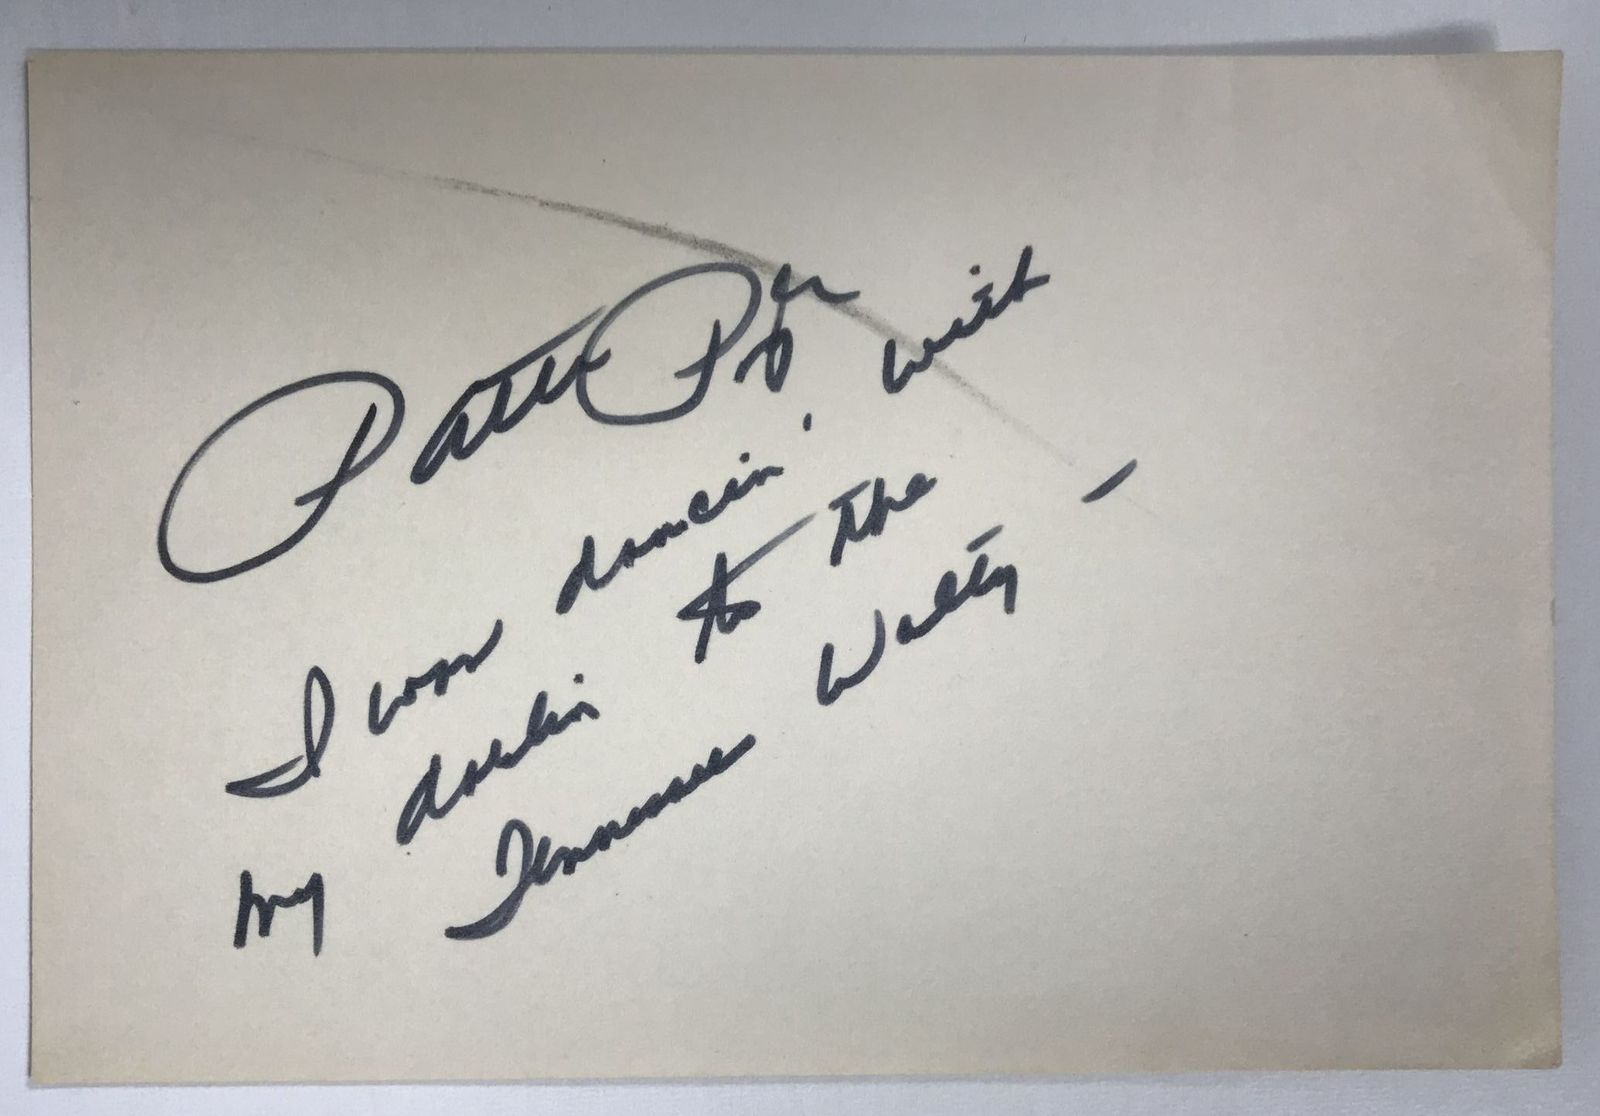 Patti Page
I was dancin' with
my darlin to the
Tennessee Waltz –